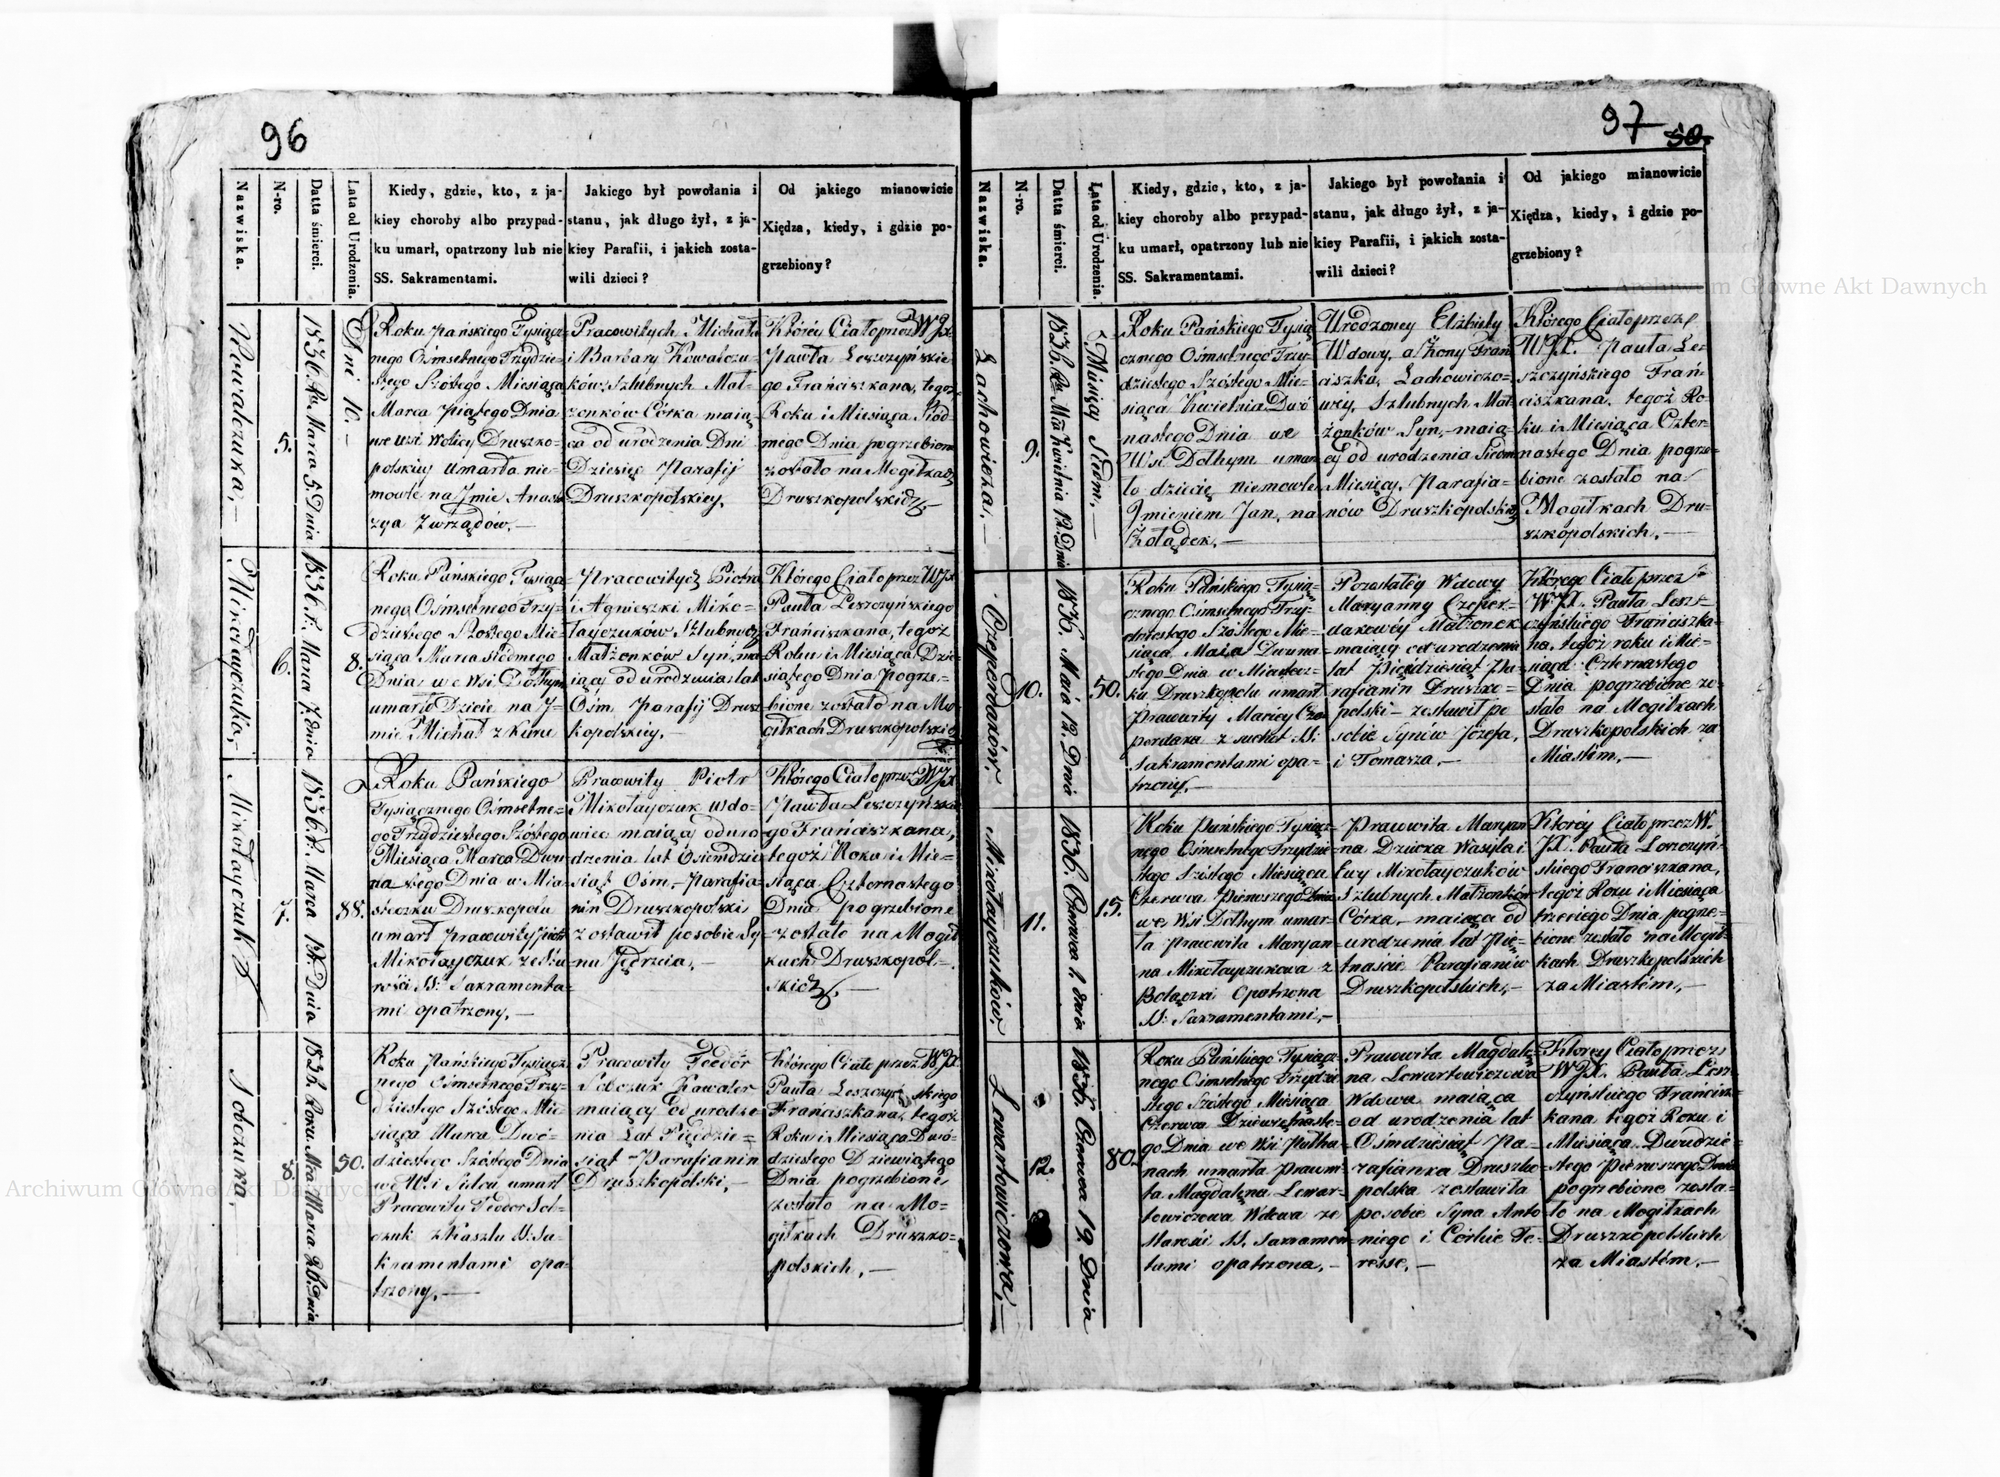 96
Nazwiska.
N-ro.
Datta śmierci.
Lata od Urodzenia.
Kiedy, gdzie, kto, z ja-
kiey choroby albo przypad-
ku umarł, opatrzony lub nie
SS. Sakramentami.
Jakiego był powołania i
stanu, jak długo żył, z ja-
kiey Parafii, i jakich zosta-
wili dzieci?
Od jakiego mianowicie
Xiędza, kiedy, i gdzie po-
grzebiony?
Kowalczuka,—
5.
1836. Ru Marca 5. Dnia
Dni 10.—
Roku Pańskiego Tysiącz-
nego Ośmsetnego Trzydzie-
stego Szóstego Miesiąca
Marca piątego Dnia
we wsi Wolicy Druszko-
polskiey umarła nie-
mowle na Jmie Anast-
zya z wrządów.—
Pracowitych Michała
i Barbary Kowalczu-
ków, Szlubnych Mał-
żonków Córka maią-
ca od urodzenia Dni
Dziesięć Parafij
Druszkopolskiey.
Któréy Ciało przez WJX.
Pawła Leszczyńskie-
go Franciszkana, tegoż
Roku i Miesiąca Siód-
mego Dnia pogrzebione
zostało na Mogiłkach
Druszkopolskich.—
Mikołayczuka,—
6.
1836. r. Marca 7. dnia
8.
Roku Pańskiego Tysiącz-
nego Ośmsetnego Trzy-
dziestego Szóstego Mie-
siąca Marca siódmego
Dnia we Wsi Dołhym
umarło Dziecie na J-
mie Michał z Kuru
Pracowitych Piotra
i Agnieszki Miko-
łayczuków Szlubnych
Małżonków Syn, ma-
iący od urodzenia lat
Ośm Parafij Drusz-
kopolskiey.—
Którego Ciało przez WJX.
Pawła Leszczyńskiego
Franciszkana, tegoż
Roku i Miesiąca Dzie-
siątego Dnia pogrze-
bione zostało na Mo-
giłkach Druszkopolskich
Mikołayczuk
7.
1836. r. Marca 12. Dnia
88.
Roku Pańskiego
Tysiącznego Ośmsetne-
go Trzydziestego Szóstego
Miesiąca Marca Dwu-
nastego Dnia w Mia-
steczku Druszkopolu
umarł Pracowity Piotr
Mikołayczuk ze Sta-
rości SS: Sakramenta-
mi opatrzony.—
Pracowity Piotr
Mikołayczuk wdo-
wiec maiący od uro-
dzenia lat Osiemdzie-
siąt Ośm,- Parafia-
nin Druszkopolski
zostawił po sobie Sy-
na Jędrzeia.—
Którego Ciało przez WJX.
Pawła Leszczyńskie-
go Franciszkana,
tegoż Roku i Mie-
siąca Czternastego
Dnia pogrzebione
zostało na Mogił-
kach Druszkopol-
skich.—
Sobczuka,
8.
1836. Roku. Mca Marca 26. Dnia
50.
Roku Pańskiego Tysiącz-
nego Ośmsetnego Trzy-
dziestego Szóstego Mie-
siąca Marca Dwó-
dziestego Szóstego Dnia
we Wsi umarł
Pracowity Teodor Sob-
czuk z Kaszlu SS: Sa-
kramentami opa-
trzony.—
Pracowity Teodor
Sobczuk Kawaler
maiący od urodze-
nia Lat Pięćdzie-
siąt - Parafianin
Druszkopolski.—
Którego Ciało przez WJX.
Pawła Leszczyńskiego
Franciszkana, tegoż
Roku i Miesiąca Dwó-
dziestego Dziewiątego
Dnia pogrzebione
zostało na Mo-
giłkach Druszko-
polskich.—
97
50.
Nazwiska.
N-ro.
Datta śmierci.
Lata od Urodzenia.
Kiedy, gdzie, kto, z ja-
kiey choroby albo przypad-
ku umarł, opatrzony lub nie
SS. Sakramentami.
Jakiego był powołania i
stanu, jak długo żył, z ja-
kiey Parafii, i jakich zosta-
wili dzieci?
Od jakiego mianowicie
Xiędza, kiedy, i gdzie po-
grzebiony?
Lachowicza,—
9.
1836. Ru Mca Kwietnia 12. Dnia
Miesięcy Siedm,—
Roku Pańskiego Tysią-
cznego Ośmsetnego Trzy-
dziestego Szóstego Mie-
siąca Kwietnia Dwó-
nastego Dnia we
Wsi Dołhym umar-
ło dziecię niemowle
Jmieniem Jan, na
Żołądek.—
Urodzoney Elżbiety
Wdowy, a Żony Fran-
ciszka, Lachowiczo-
wey, Szlubnych Mał-
żonków Syn,- maią-
cy od urodzenia Siedm
Miesięcy, Parafia-
nów Druszkopolskich
Którego Ciało przez
WJX. Pawła Le-
szczyńskiego Fran-
ciszkana, tegoż Ro-
ku i Miesiąca Czter-
nastego Dnia pogrze-
bione zostało na
Mogiłkach Dru-
szkopolskich.—
Czeperdaków.
10.
1836. Maia 12. Dnia
50.
Roku Pańskiego Tysią-
cznego Ośmsetnego Trzy-
dziestego Szóstego Mie-
siąca Maia Dwuna-
stego Dnia w Miastecz-
ku Druszkopolu umarł
Pracowity Maciey Cze-
perdaka z suchot SS:
Sakramentami opa-
trzony.—
Pozostałey Wdowy
Maryanny Czeper-
dakowey Małżonek
maiący od urodzenia
lat Pięćdziesiąt Pa-
rafianin Druszko-
polski - zostawił po
sobie Synów Józefa,
i Tomasza.—
Którego Ciało przez
WJX. Pawła Lesz-
czyńskiego Franciszka-
na, tegoż roku i Mie-
siąca Czternastego
Dnia pogrzebione zo-
stało na Mogiłkach
Druszkopolskich za
Miastem.—
Mikołayczuków.
11.
1836. Czerwca 1. dnia
15.
Roku Pańskiego Tysiącz-
nego Ośmsetnego Trzydzie-
stego Szóstego Miesiąca
Czerwca Pierwszego Dnia
we Wsi Dołhym umar-
ła Pracowita Maryan-
na Mikołayczukowa z
Bolączki Opatrzona
SS: Sakramentami.—
Pracowita Maryan-
na Dziecka Wasyla i
Ewy Mikołayczuków
Szlubnych Małżonków
Córka,- maiąca od
urodzenia lat Pię-
tnaście Parafianów
Druszkopolskich.—
Któréy Ciało przez W.
JX. Pawła Leszczyń-
skiego Franciszkana,
tegoż Roku i Miesiąca
trzeciego Dnia pogrze-
bione zostało na Mogił-
kach Druszkopolskich
za Miastem.—
Lewartowiczowa,—
12.
1836. Czerwca 19. Dnia
80.
Roku Pańskiego Tysiącz-
nego Ośmsetnego Trzydzie-
stego Szóstego Miesiąca
Czerwca Dziewiętnaste-
go Dnia we Wsi
nach umarła Pracowi-
ta Magdalena Lewar-
towiczowa Wdowa ze
Starości SS. Sakramen-
tami opatrzona.—
Pracowita Magdale-
na Lewartowiczowa
Wdowa maiąca
od urodzenia lat
Ośmdziesiąt Pa-
rafianka Druszko-
polska zostawiła
po sobie Syna Anto-
niego i Córkie Te-
resse.—
Któréy Ciało przez
WJX. Pawła Lesz-
czyńskiego Francisz-
kana tegoż Roku i
Miesiąca Dwudzie-
stego Pierwszego Dnia
pogrzebione zosta-
ło na Mogiłkach
Druszkopolskich
za Miastem.—
Archiwum Główne Akt Dawnych
Archiwum Główne Akt Dawnych